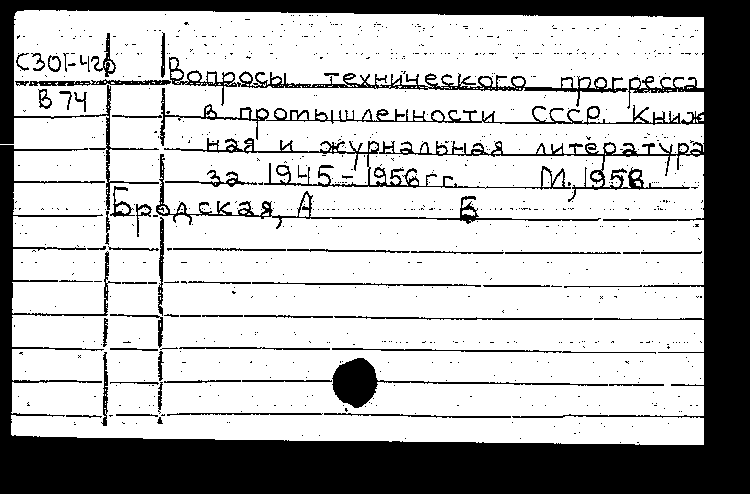 С301-420
Вопросы технического прогресса
В 74
в промышленности СССР. Книж
ная и журнальная литература
за 1945-1956 гг. М., 1956.
Бродская, А Б